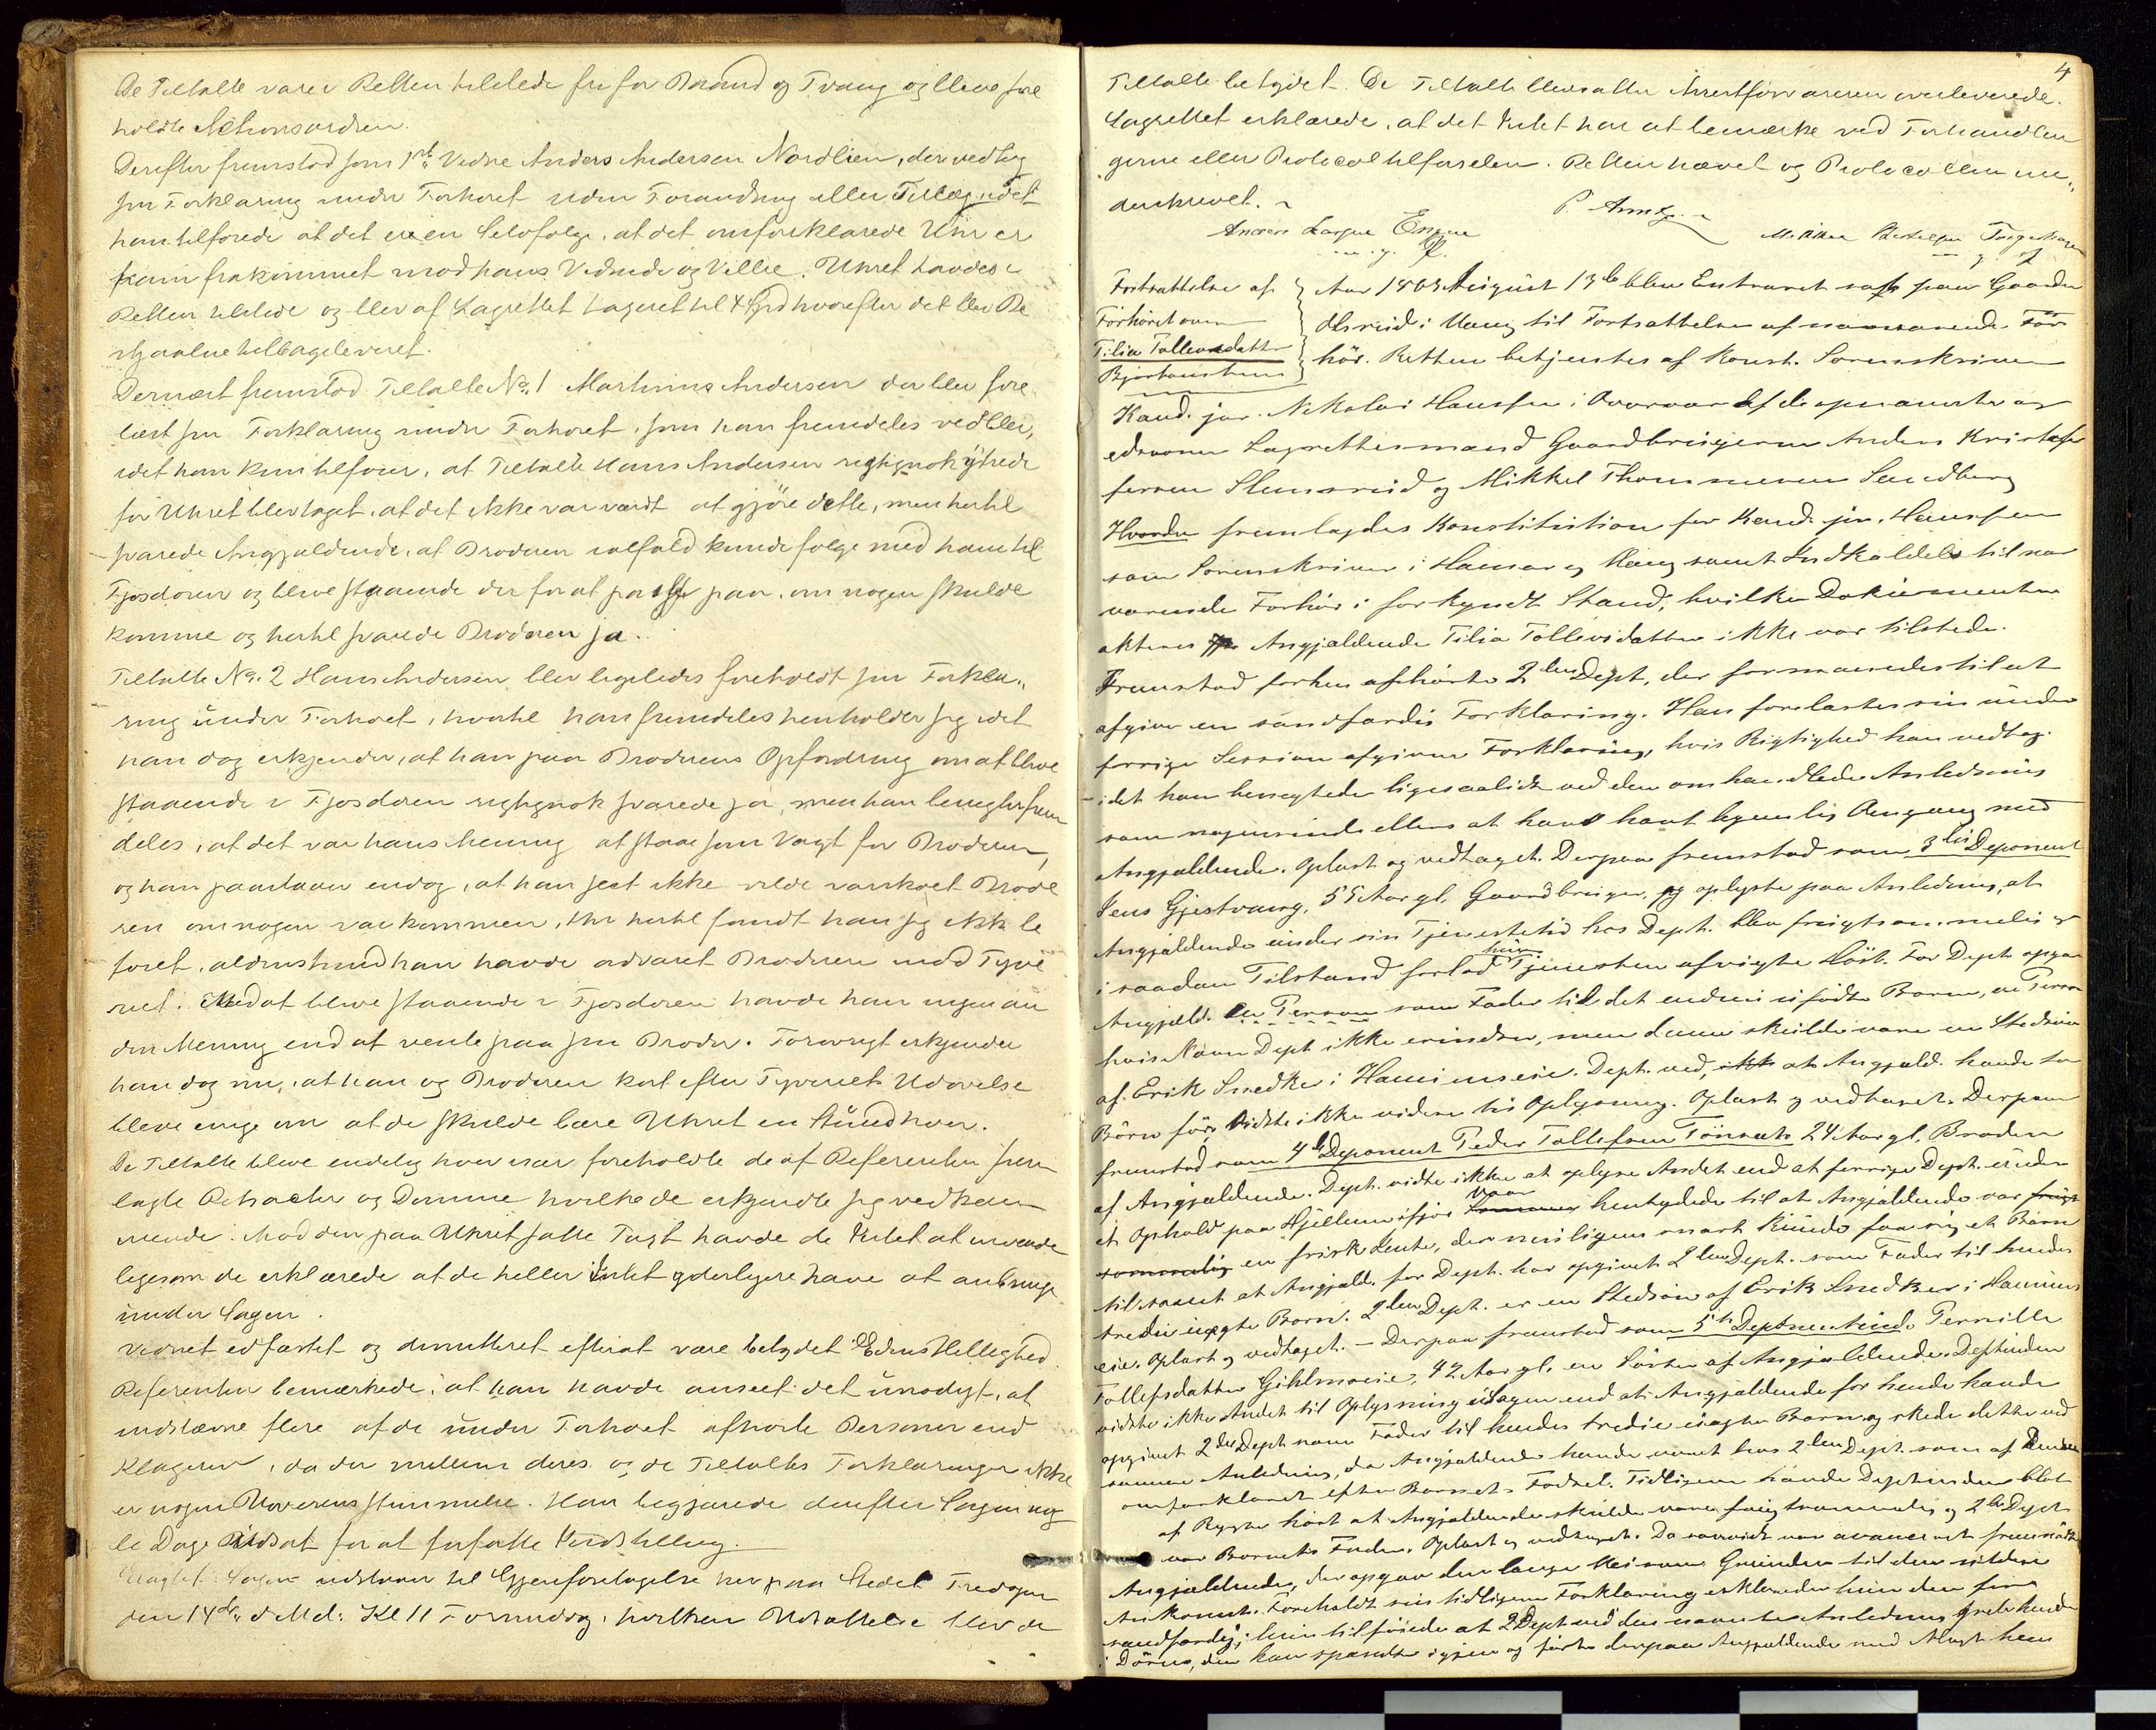 De Tiltalte varer Retten tilstede fri for Baand og Tvang og bleve fore
holdte Actionsordren.
Derefter fremstod som 1ste Vidne Anders Andersen Nordlien, der vedtog
sin Forklaring under Forhøret uden Forandring eller Tillæg, idet
han tilførede at det er en Selvfølge, at det omforklarede Uhr er
ham frakommet mod hans Vidende og Villie. Uhret havdes i
Retten tilstede og blev af Lagrettet taxeret til 4 Spd hvorefter det blev Be
stjaalne tilbageleveret.
Dernæst fremstod Tiltalte No. 1 Martinus Andersen der blev fore
læst sin Forklaring under Forhøret, som han fremdeles vedblev,
idet han kun tilføier, at Tiltalte Hans Andersen rigtignok ytrede
før Uhret blev taget, at det ikke var værdt at gjøre dette, men hertil
svarede Angjældende, at Broderen ialfald kunde følge med ham til
Fjøsdøren og blive staaende der for at passe paa, om nogen skulde
komme og hertil svarede Broderen ja.
Tiltalte No. 2 Hans Andersen blev ligeledes foreholdt sin Forkla-
ring under Forhøret, hvortil han fremdeles henholder sig idet
han dog erkjender, at han paa Broderens Opfordring om at blive
staaende i Fjøsdøren rigtignok svarede ja, men han benegter frem
deles, at det var hans Mening at staa som Vagt for Broderen,
og han paastaaer endog, at han slet ikke vilde varskoet Brode
ren om nogen var kommen, thi hertil fandt han sig ikke be
føiet, aldenstund han havde advaret Broderen mod Tyve
riet. Med at blive staaende i Fjøsdøren havde han ingen an
den Mening end at vente paa sin Broder. Forøvrigt erkjender
han dog nu, at han og Broderen kort efter Tyveriets Udøvelse
bleve enige om at de skulde bære Uhret en Stund hver.
De Tiltalte bleve endelig hver især foreholdte de af Referenten frem
lagte Attester og Domme hvilke de erkjendte sig vedkom
mende. Mod den paa Uhret satte Taxt havde de Intet at indvende
ligesom de erklærede at de heller Intet yderligere have at anbringe
under Sagen.
Vidnet edfæstet og dimitteret efterat være betydet Edens Hellighed.
Referenten bemærkede, at han havde anseet det unødigt, at
indstævne flere af de under Forhøret afhørte Personer end
Klageren, da der mellem deres og de Tiltaltes Forklaringer ikke
er nogen Uoverensstemmelse. Han begjærede derefter Sagen nog
le Dage Udsat for at forfatte Indstilling.
Eragtet: Sagen udstaaer til Gjenforetagelse her paa Stedet Fredagen
den 14de d. Md. Kl 11 Formiddag, hvilken Udsættelse blev de
4
Tiltalte betydet. De Tiltalte bleve atter Arrestforvareren overleverede.
Lagrettet erklærede, at det Intet har at bemærke ved Forhandlin
gerne eller Protocoltilførselen. Retten hævet og Protocollen un-
derskrevet.
P. Arntz.
Anders Larsen Enger
Mikkel
m. p. P.
Fortsættelse af
Forhøret over
Tilia Tollevsdatter
Bjørtomshuus
Aar 1863 August 13de blev Extraret sat paa Gaarden
Alsrud i Vang til Fortsættelse af nærværende For
hør. Retten betjentes af Konst. Sorenskriver
Kand. jur. Nikolai Hanssen i Overvær af de opnævnte og
edsvorne Lagrettesmænd Gaardbrugerne Anders Kristof
fersen Slemsrud og Mikkel Thommesen Sundberg
Hvorda fremlagdes Konstitution for Kand. jur. Hanssen
som Sorenskriver i Hamar og Vang samt Indkaldelse til nær
værende Forhør i forkyndt Stand, hvilke Dokumenter
akteres Angjældende Tilia Tollevsdatter ikke var tilstede.
Fremstod forhen afhørte 2den Dept, der formanedes til at
afgive en sandfærdig Forklaring. Han forelæstes sin under
forrige Session afgivne Forklaring, hvis Rigtighed han vedtog
idet han benegtede ligesaalidt ved den omhandlede Anledning
som nogensinde ellers at have havt legemlig Omgang med
Angjældende. Oplæst og vedtaget. Derpaa fremstod som 3die Deponent
Jens Gjestvang, 55 Aar gl, Gaardbruger, og oplyste paa Anledning, at
Angjældende under sin Tjenestetid hos Dept. blev frugtsommelig og
i saadan Tilstand forlod hun Tjenesten afvigte Høst. For Dept. opgav
Angjæld. en Person som Fader til det endnu ufødte Barn, en Person
hvis Navn Dept ikke erindrer, men denne skulde være en Stedsøn
af Erik Snedker i Hamimseie. Dept. ved, ikke at Angjæld. havde to
Børn før. Vidste ikke videre til Oplysning. Oplæst og vedtaget. Derpaa
fremstod som 4de Deponent Peder Tollefsen Tønsæt 24 Aar gl. Broder
af Angjældende. Dept. vidste ikke at oplyse Andet end at forrige Dept. under
et Ophold paa Hjellum ifjor Sommer vaar hentydede til at Angjældende var frugt
sommelig en frisk Jente, der rimeligens snart kunde faa sig et Barn
tilsamt at Angjæld. for Dept. har opgivet 2den Dept. som Fader til hendes
tredie uægte Barn. 2den Dept. er en Stedsøn af Erik Snedker i Hamims
eie. Oplæst og vedtaget. – Derpaa fremstod som 5te Deponentinde Pernille
Tollefsdatter Gihlmoeie, 42 Aar gl. en Søster af Angjældende. Deptinden
vidste ikke Andet til Oplysning i Sagen end at Angjældende for hende havde
opgivet 2den Dept som Fader til hendes tredie uægte Barn og skede dette ved
samme Anledning, da Angjældende havde været hos 2den Dept. som af Denne
omforklaret efter Barnets Fødsel. Tidligere havde Deptinden blot
af Rygte hørt at Angjældende skulde være frugtsommelig og 2den Dept
var Barnets Fader. Oplæst og vedtaget. Da saavidt var avanceret fremmødte
Angjældende, der opgav den lange Vei som Grunden til den sildige
Ankomst. Foreholdt sin tidligere Forklaring erklærede hun den for
sandfærdig; hun tilføiede at 2 Dept ved den nævnte Anledning greb hende
i Døren, den han spændte igjen og førte derpaa Angjældende med Magt hen